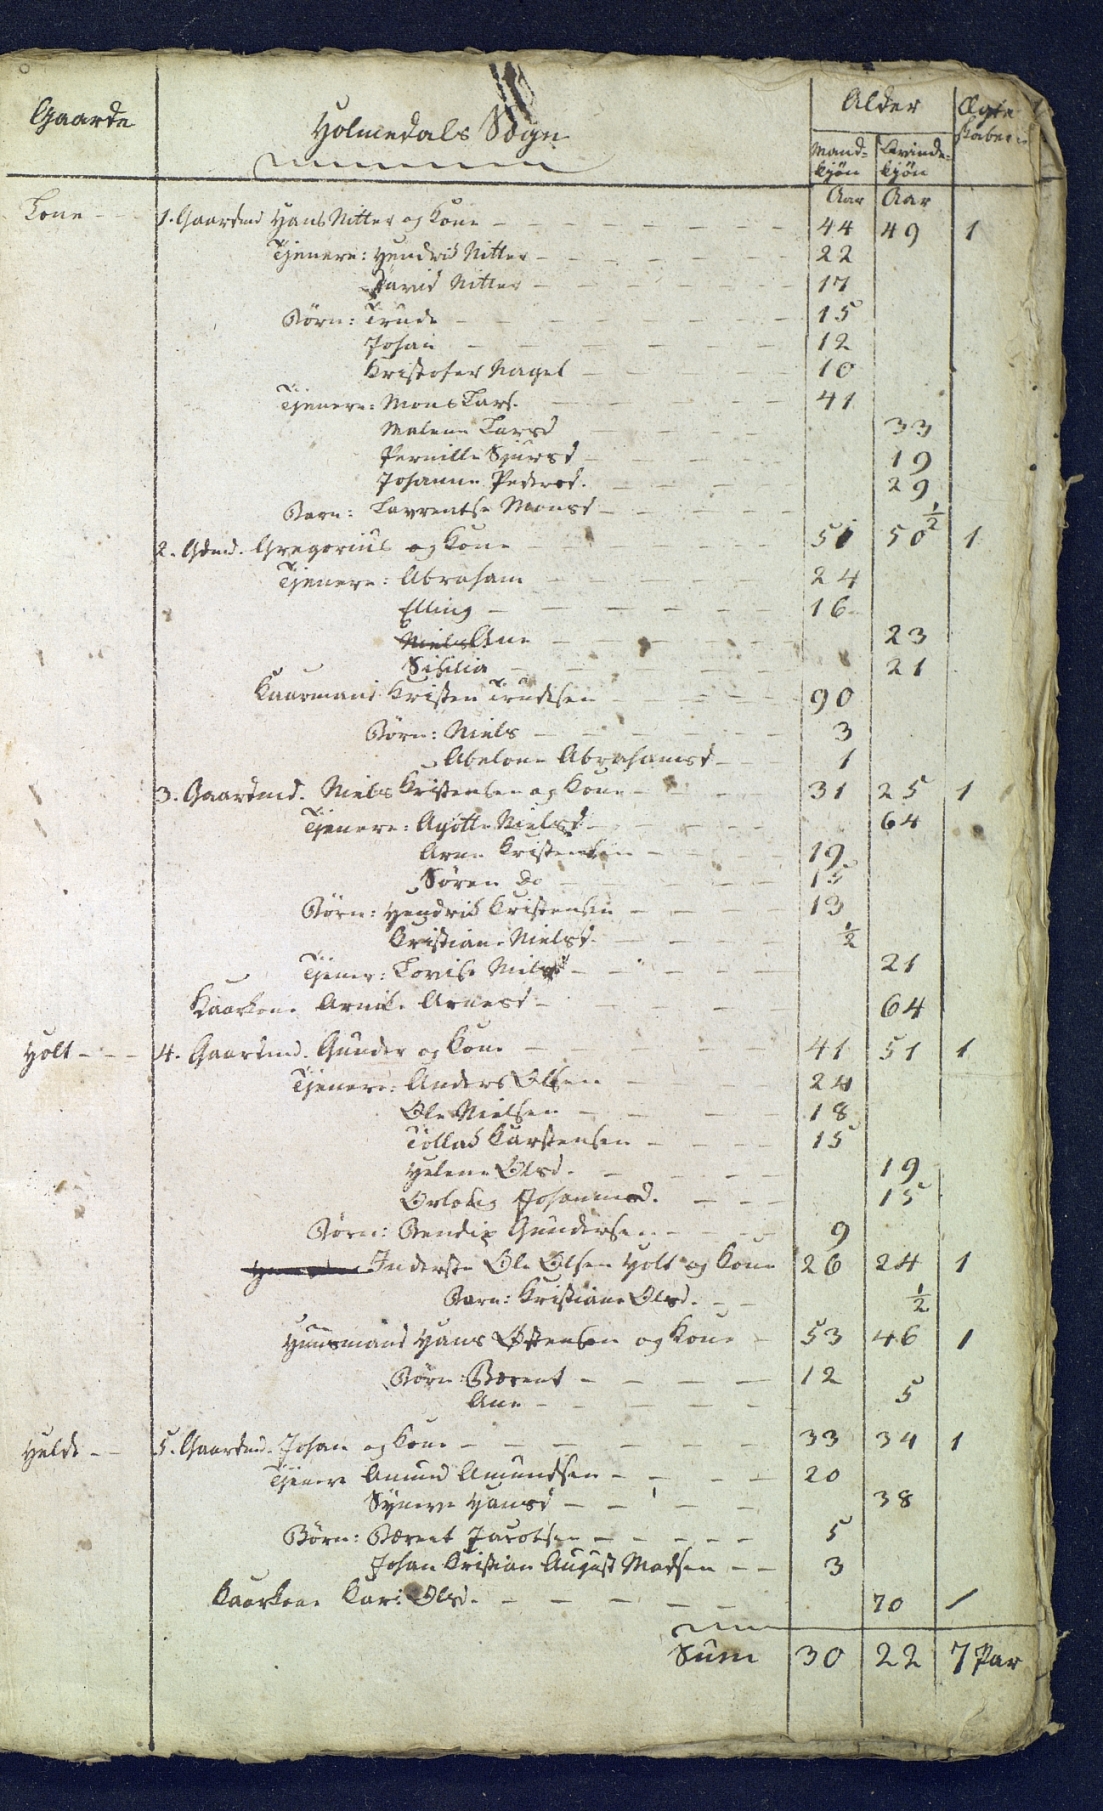 Gaarde Holmedals Sogn Alder Ægte
skaber
Mand- Kvinde-
kjön kjön
Aar Aar
Tone - - 1. Gaardmd Hans Nitter og Kone 44 49 1
Tjenere: Hendrick Nitter 22
David Nitter 17
Börn: Trude 15
Johan 12
Kristofer Nagel 10
Tjenere: Mons Lars. 41
Malene Larsd 33
Pernille Sjursd 19
Johanne Pedersd. 29
Barn: Lavrentse Monsd ½
2. Gdmd. Gregorius og Kone 51 50 1
Tjenere: Abraham 24
Elling 16
Ane 23
Sisilia 21
Kaarmand Kristen Trudesen 90
Börn: Niels 3
Abelone Abrahamsd 1
3. Gaardmd. Niels Kristensen og Kone 31 25 1
Tjenere: Agotte Nielsd 64
Arne Kristensen 19
Sören do 15
Börn: Hendrick Kristensen 13
Kristiane Nielsd. ½
Tjener: Lovise Nielsd 21
Kaarkone Arnesd 64
Holt - - - 4. Gaardmd. Gunder og Kone 41 51 1
Tjenere: Anders Olsen 24
Ole Nielsen 18
Karstensen 15
Helene Olsd. 19
Johannesd. 15
Börn: Bendix Gundersen 9
Inderste Ole Olsen Holt og Kone 26 24 1
Barn: Kristiane Olsd. ½
Huusmand Hans Östensen og Kone 53 46 1
Börn: Bærent 12
Ane 5
Hulde - - 5. Gaardmd. Johan og Kone 33 34 1
Tjenere Amund Amundsen 20
Synneve Hansd 38
Börn: Bærent Jacobsen 5
Johan Kristian August Madsen 3
Kaarkone Kari Olsd. 70 1
Sum 30 22 7 Par